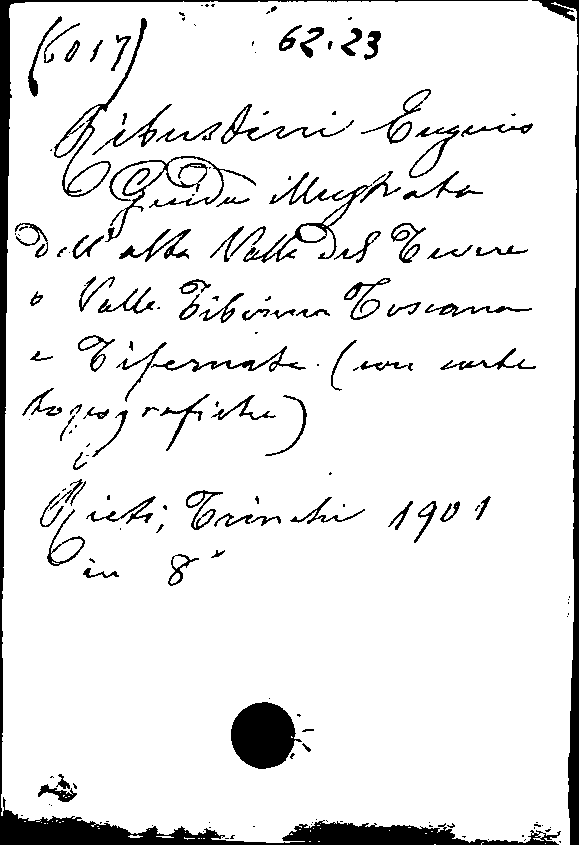 (6017) 62.23
Ribustini Eugenio
Guida illustrata
dell'alta Valle del Tevere
o Valle Tiberina Toscana
e Tifernate (con carte
topografiche)
Rieti, Trinchi 1901
in 8°